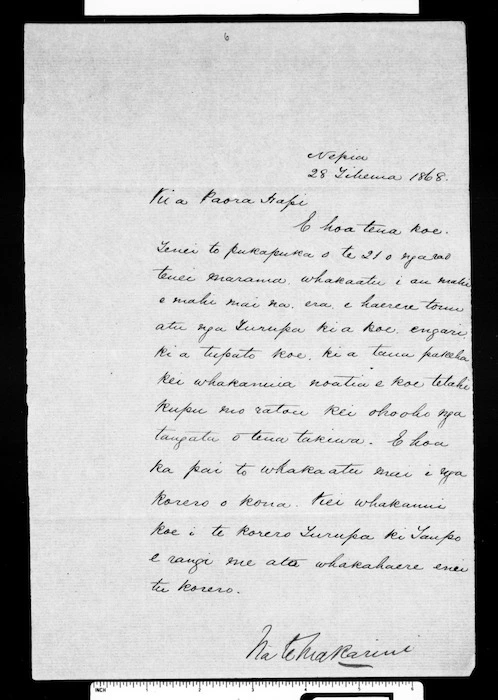 6
Nepia
28 Tihema 1868.
Kia Paora Hapi
E hoa tena koe.
Tenei to pukapuka o te 21 o nga ra o
tenei marama. whakaatu i au mahi
e mahi mai na. era. e haerere tonu
atu nga Turupa kia koe. engari.
kia tupato koe. kia tau pakeha
kei whakanuia noatia e koe tetahi
kupu mo ratou kei ohooho nga
tangata o tena takiwa. E hoa
ka pai to whakaatu mai i nga
korero o kona. Kei whakanui
koe i te korero Turupa ki Taupo
e rangi me ata whakahaere enei
tu korero.
Na te Makarini
INCH 1 2 3 4